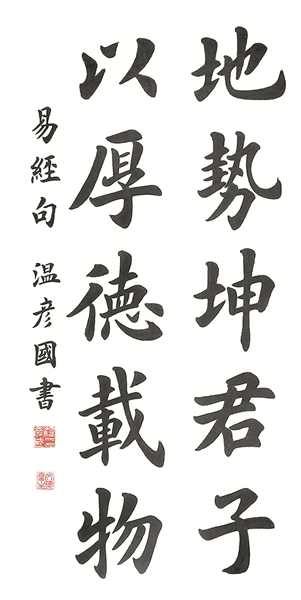 地勢坤君子
以厚德載物
易經句 温彦國書